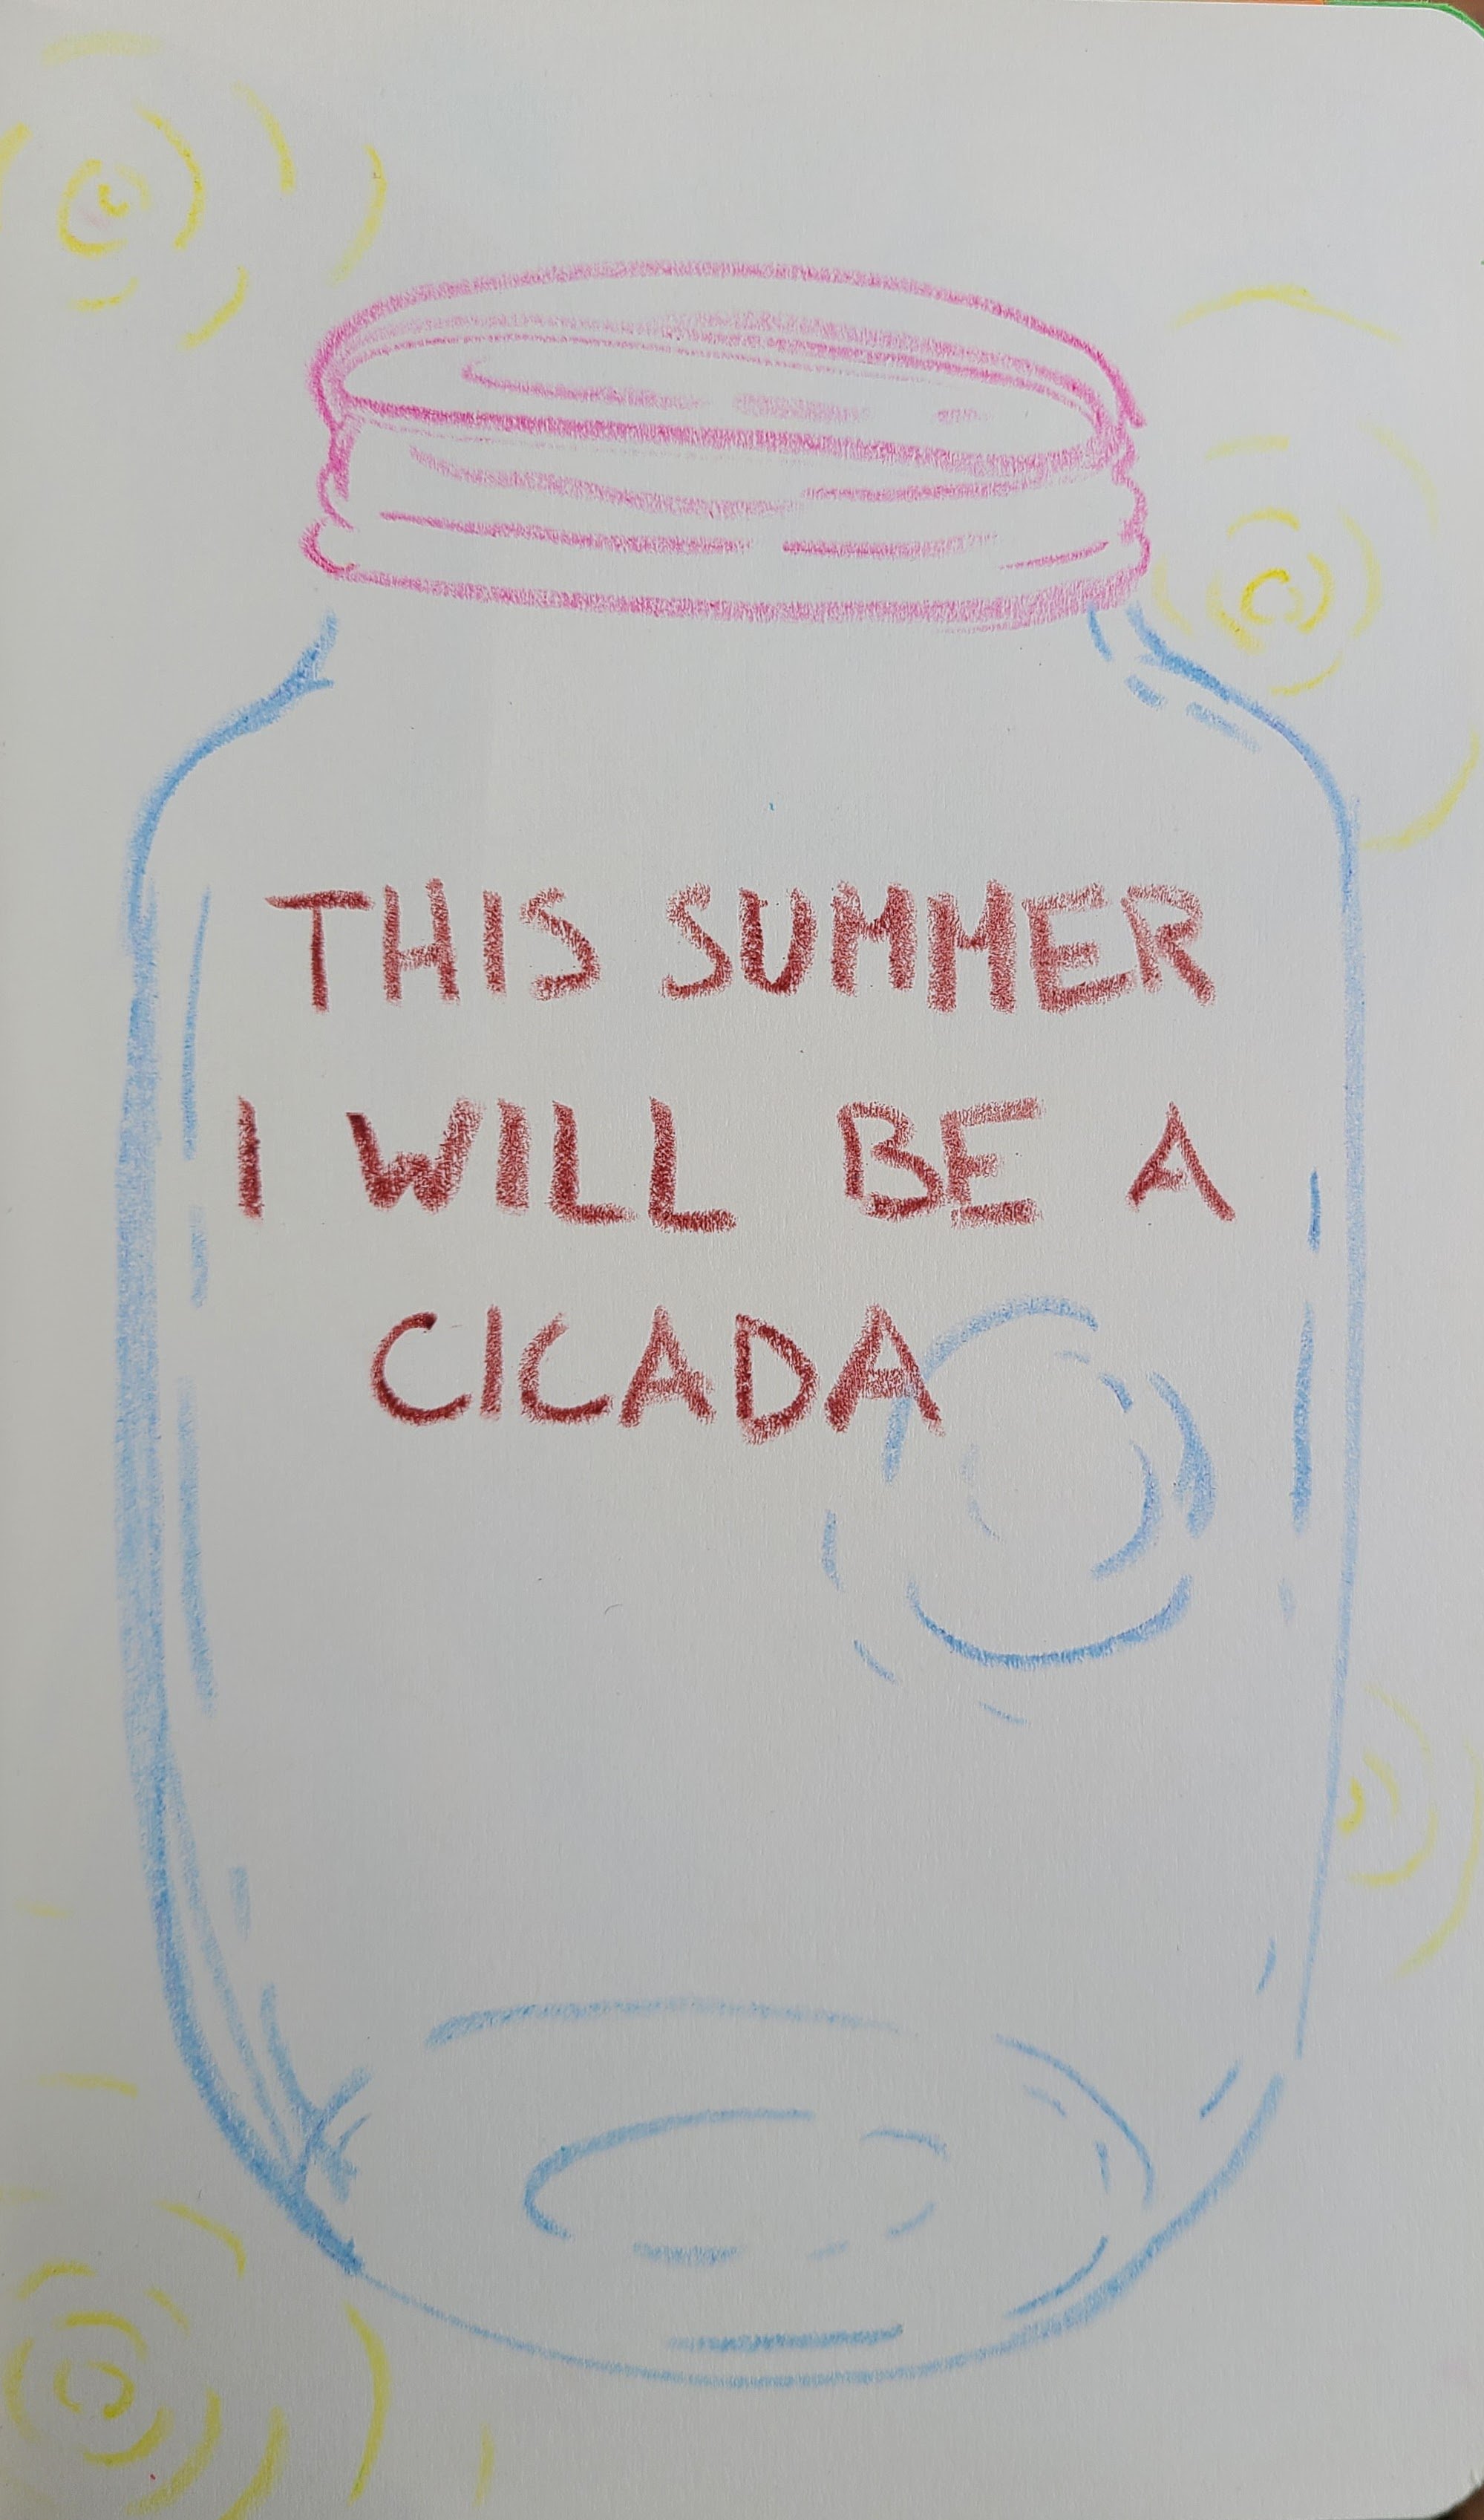 THIS SUMMER
I WILL BE A
CICADA